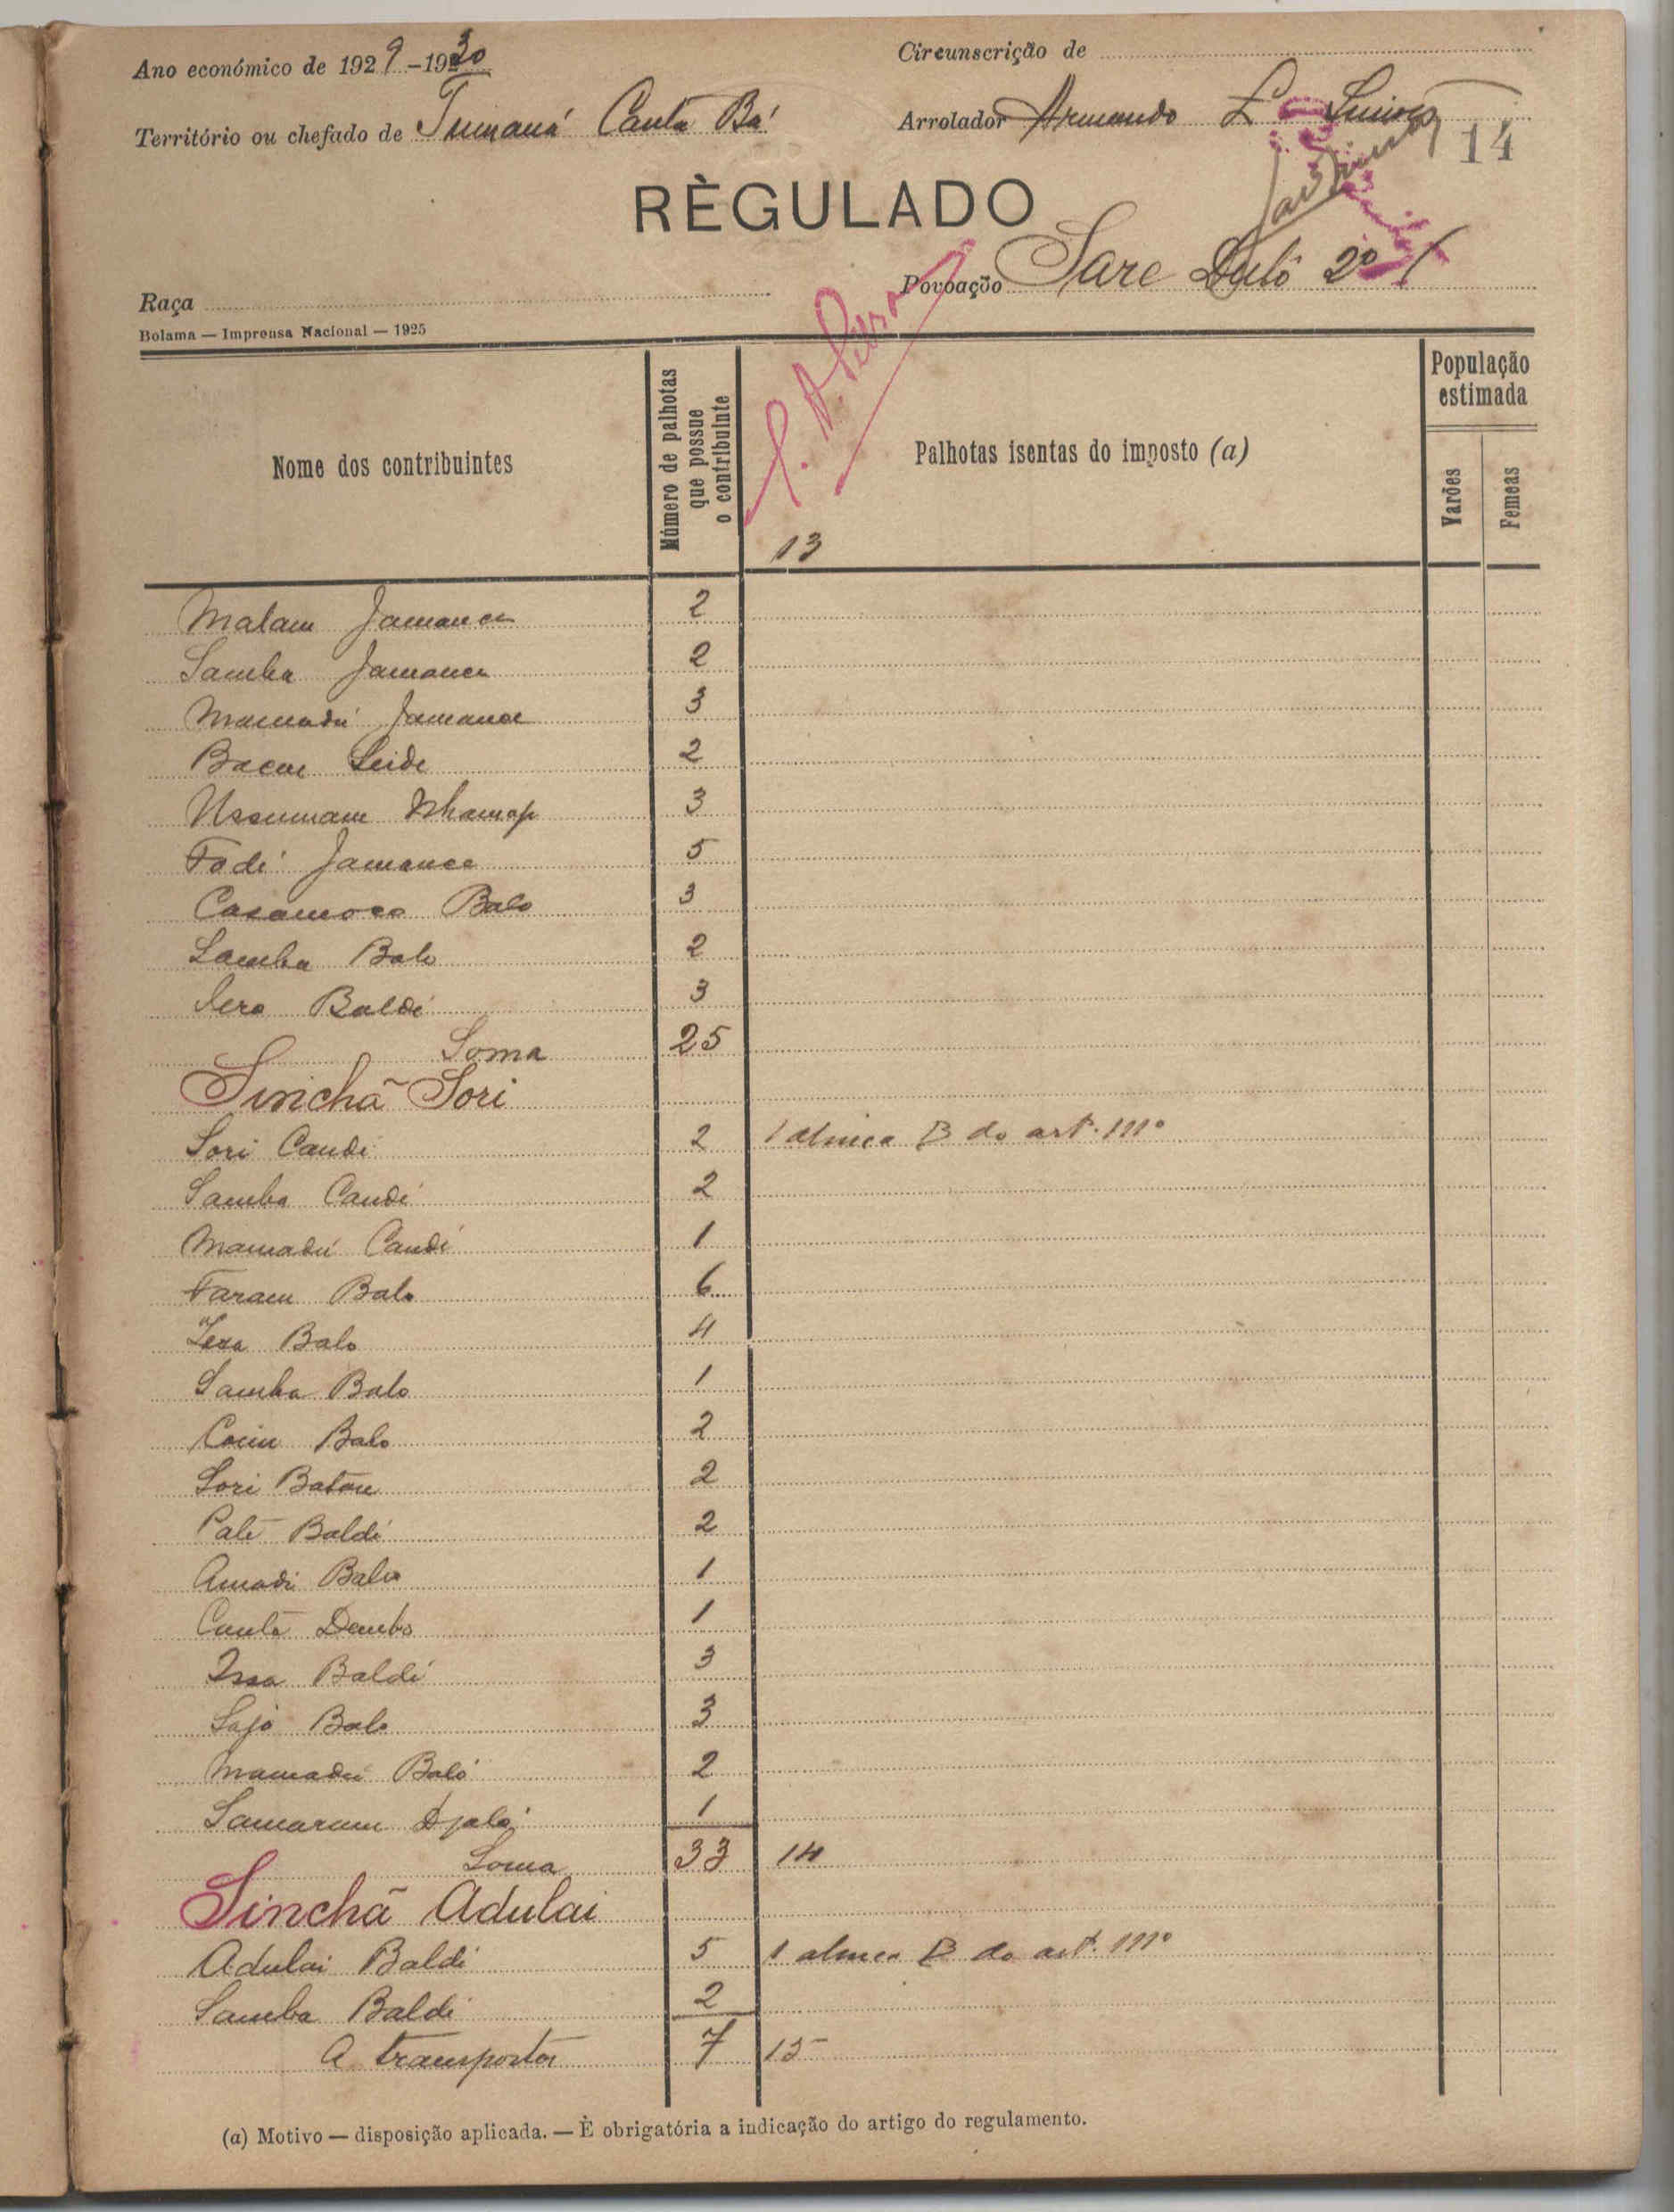 Ano económico de 1929-1930
Circunscrição de
Território ou chefado de Tumaná Canta Bá
Arrolador Armando L
14
RÈGULADO
Povoação Sare Dulô 2º
Raça
Bolama — Imprensa Nacional — 1925
Nome dos contribuintes
Número de palhotas que possue o contribuinte
Palhotas isentas do imposto (a)
População estimada
Varões
Femeas
13
Malam Jamanca 2
Samba Jamanca 2
Mamadú Jamanca 3
Bacar Seide 2
Ussumam 3
Fodé Jamanca 5
Casamoco Balo 3
Samba Balo 2
Iero Baldé 3
Soma 25
Sinchã Sori
Sori Candé 2 1 alinea B do art. 111º
Samba Candé 2
Mamadú Candé 1
Faram Balo 6
Balo 4
Samba Balo 1
Balo 2
Sori 2
Paté Baldé 2
Amadi Balo 1
Canta Dembo 1
Issa Baldé 3
Sajo Balo 3
Mamadú Baló 2
Djaló 1
Soma 33 14
Sinchã Adulai
Adulai Baldé 5 1 alinea B do art. 111º
Samba Baldé 2
A transportar 7 15
(a) Motivo — disposição aplicada. — È obrigatória a indicação do artigo do regulamento.